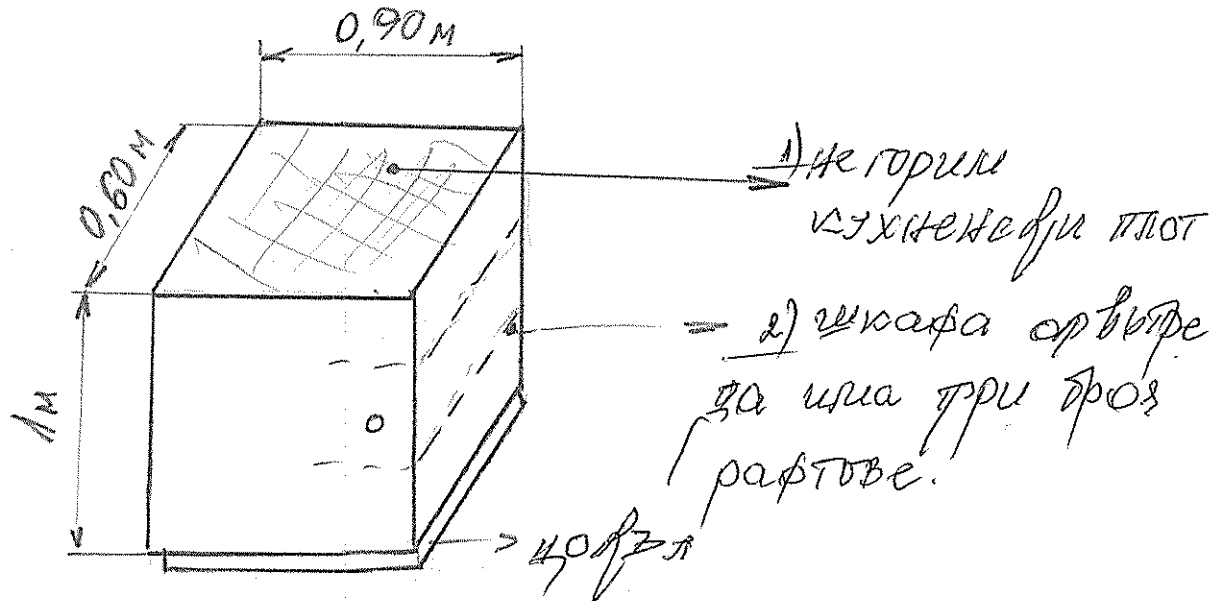 0,90 м
0,60 м
1 м
1) не горим
кухненски плот
2) шкафа отвътре
да има три броя
рафтове.
цокъл